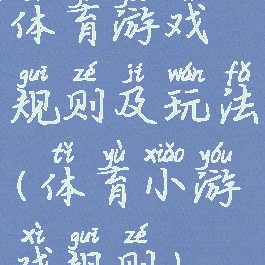 体育游戏
guī zé jí wán fǎ
规则及玩法
tǐ yù xiǎo yóu
(体育小游
xì guī zé
戏规则)